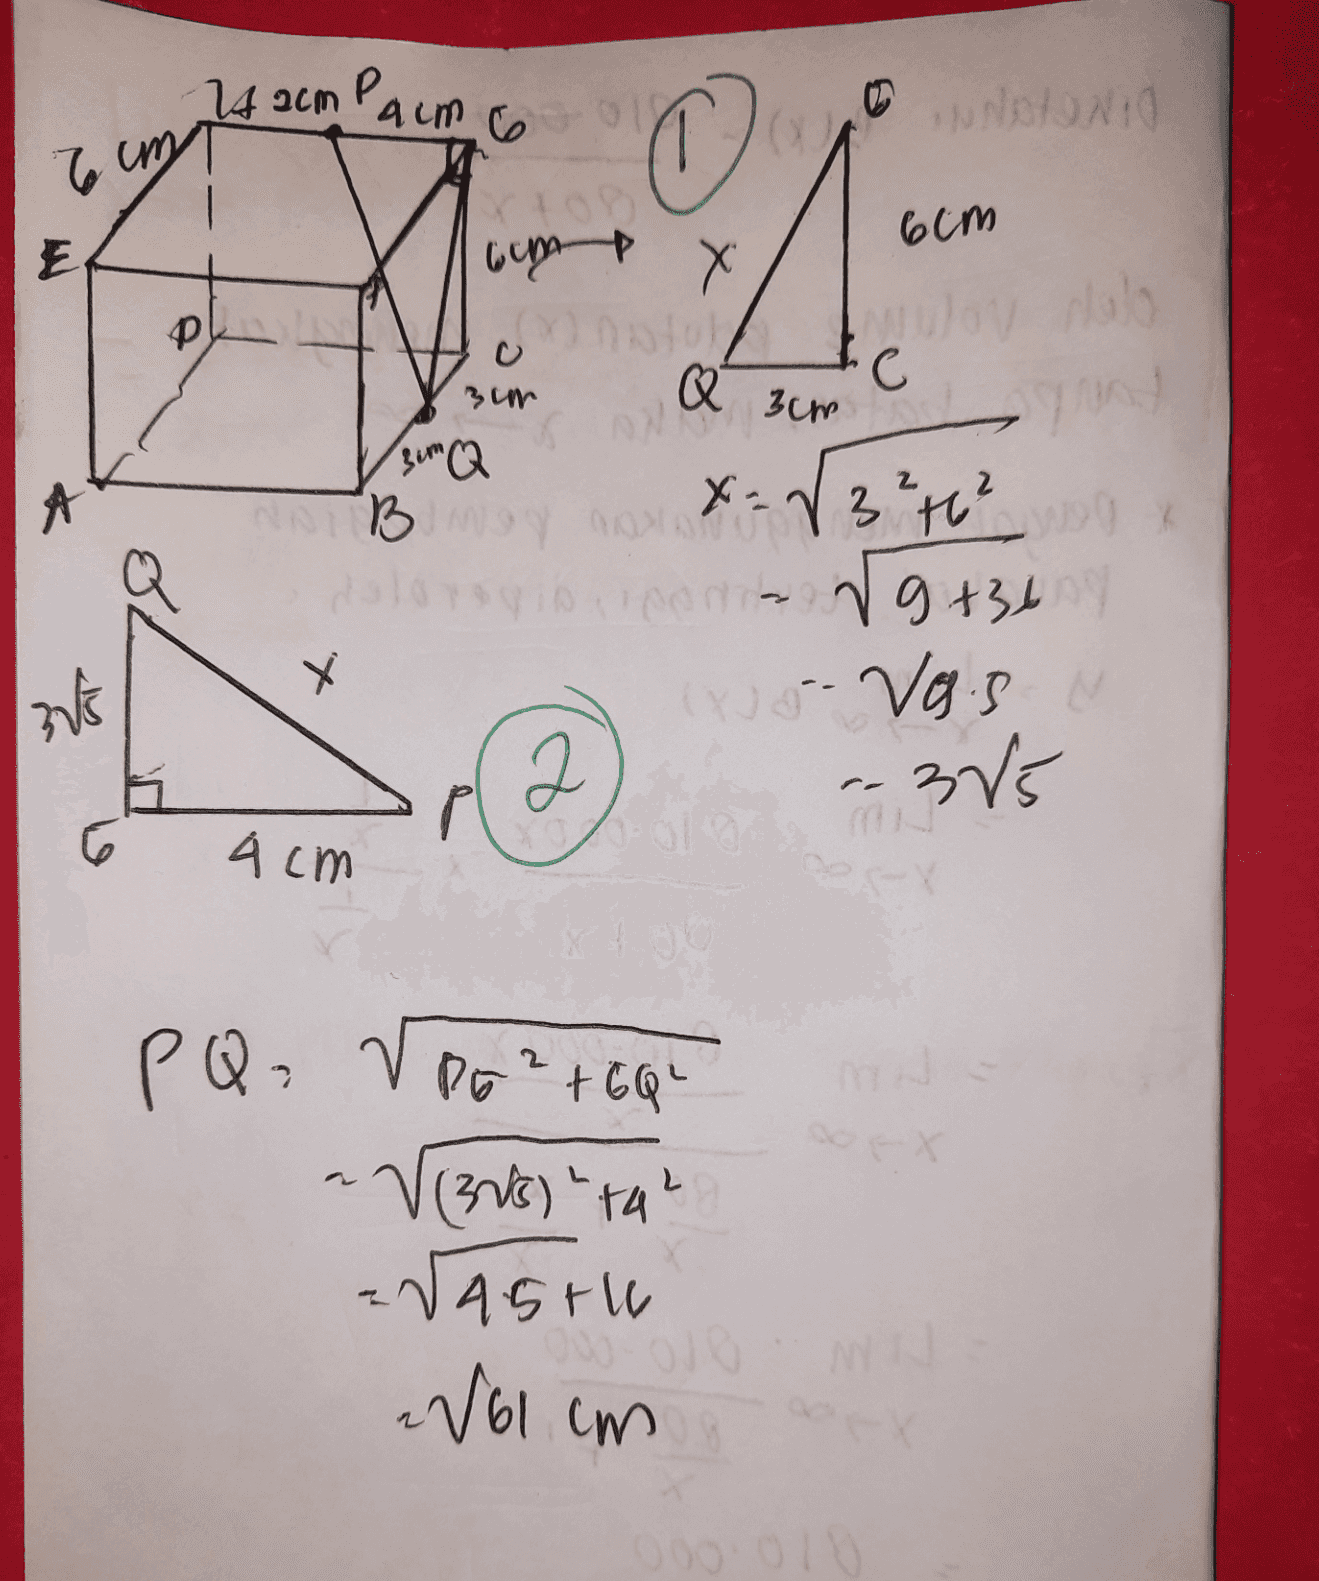 H 2cm P 4cm G
6 cm
E
F
6cm
D
C
3cm
3cm Q
A
B
1
G
x
6cm
Q 3cm C
x = √3²+6²
= √9+36
= √9.5
= 3√5
Q
3√5
x
G
4 cm
P
2
PQ = √PG²+GQ²
= √(3√5)²+4²
= √45+16
= √61 cm